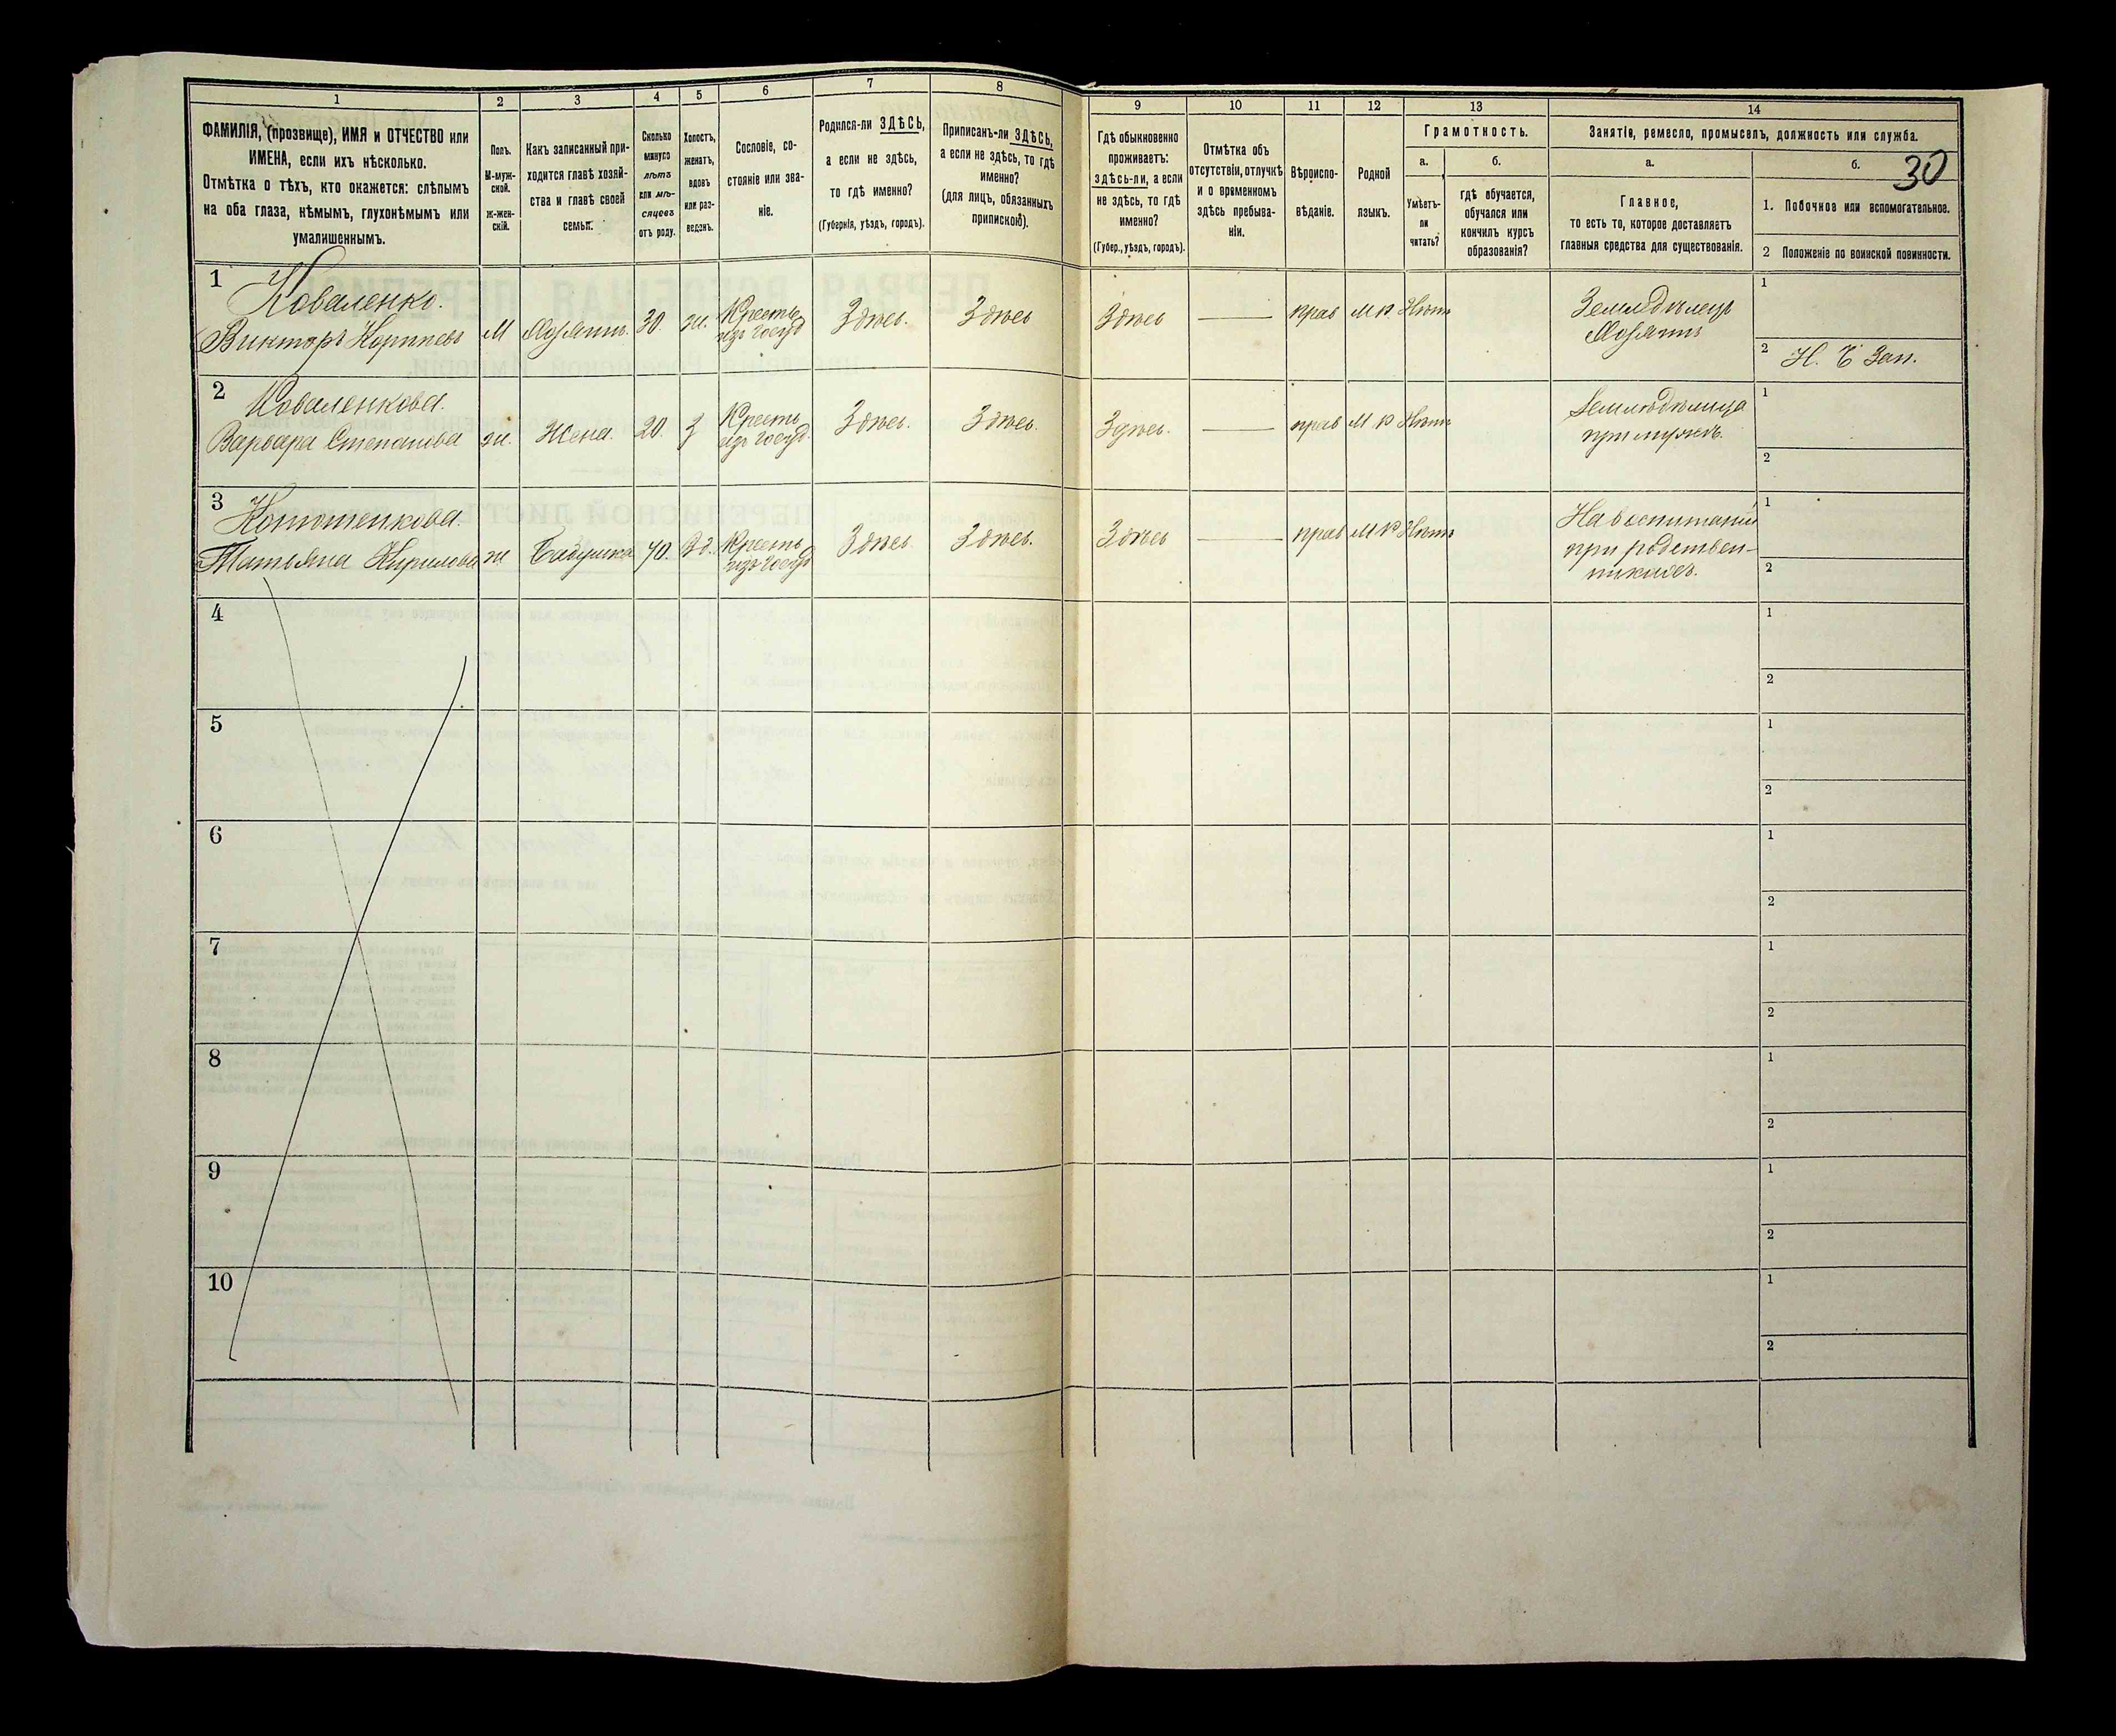 1
2
3
4
5
6
7
8
9
10
11
12
13
14
ФАМИЛІЯ, (прозвище), ИМЯ и ОТЧЕСТВО или
ИМЕНА, если ихъ нѣсколько.
Отмѣтка о тѣхъ, кто окажется: слѣпымъ
на оба глаза, нѣмымъ, глухонѣмымъ или
умалишеннымъ.
Полъ.
М-муж-
ской.
Ж-жен-
скій.
Какъ записанный при-
ходится главѣ хозяй-
ства и главѣ своей
семьи.
Сколько
минуло
лѣтъ
или мѣ-
сяцевъ
отъ роду.
Холостъ,
женатъ,
вдовъ
или раз-
веденъ.
Сословіе, со-
стояніе или зва-
ніе.
Родился-ли ЗДѢСЬ,
а если не здѣсь,
то гдѣ именно?
(Губернія, уѣздъ, городъ).
Приписанъ-ли ЗДѢСЬ,
а если не здѣсь, то гдѣ
именно?
(для лицъ, обязанныхъ
припискою).
Гдѣ обыкновенно
проживаетъ:
здѣсь-ли, а если
не здѣсь, то гдѣ
именно?
(Губер., уѣздъ, городъ).
Отмѣтка объ
отсутствіи, отлучкѣ
и о временномъ
здѣсь пребыва-
ніи.
Вѣроиспо-
вѣданіе.
Родной
языкъ.
Грамотность.
а.
Умѣетъ-
ли
читать?
б.
гдѣ обучается,
обучался или
кончилъ курсъ
образованія?
Занятіе, ремесло, промыселъ, должность или служба.
а.
Главное,
то есть то, которое доставляетъ
главныя средства для существованія.
б.
30
1. Побочное или вспомогательное.
2 Положеніе по воинской повинности.
1
Коваленко.
Викторъ
М
Хозяинъ.
30.
ж.
Крестья
изъ госуд
Здѣсь.
Здѣсь
Здѣсь
прав
М Р
Нѣтъ
Земледѣлецъ
Хозяинъ
1
2
Зап.
2
Коваленкова.
Варвара Степанова
ж.
Жена.
20.
З
Крестья
изъ госуд.
Здѣсь.
Здѣсь.
Здѣсь.
прав
М Р
Нѣтъ
Земледѣлица
при мужѣ.
1
2
3
Татьяна Кирилова
ж
Бабушка
70.
Вд.
Крестья
изъ госуд
Здѣсь.
Здѣсь.
Здѣсь
прав
М Р
Нѣтъ
На воспитаніи
при родствен-
никахъ.
1
2
4
1
2
5
1
2
6
1
2
7
1
2
8
1
2
9
1
2
10
1
2